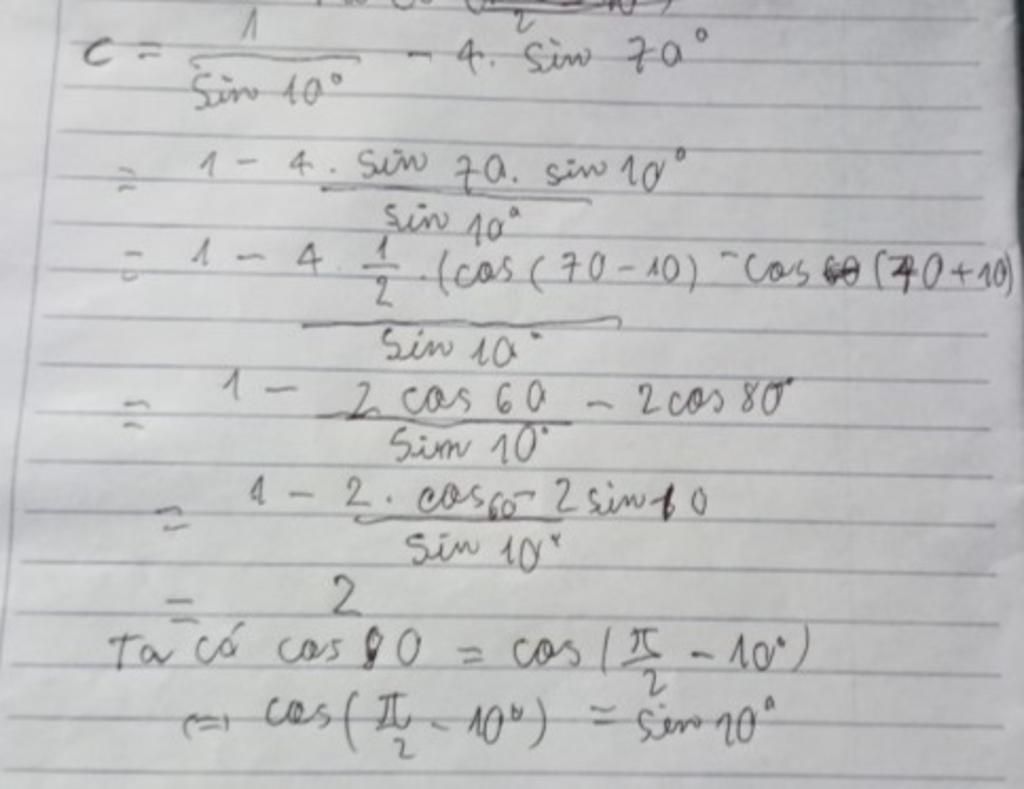 C = 1 / sin 10° - 4. sin 70°
= 1 - 4. sin 70. sin 10° / sin 10°
= 1 - 4. 1/2 .(cos(70-10) - cos (70+10) / sin 10°
= 1 - 2 cos 60 - 2cos 80° / sin 10°
= 1 - 2. cos 60 - 2 sin 10 / sin 10°
= 2
Ta có cos 80 = cos(π/2 - 10°)
⇔ cos(π/2 - 10°) = sin 10°